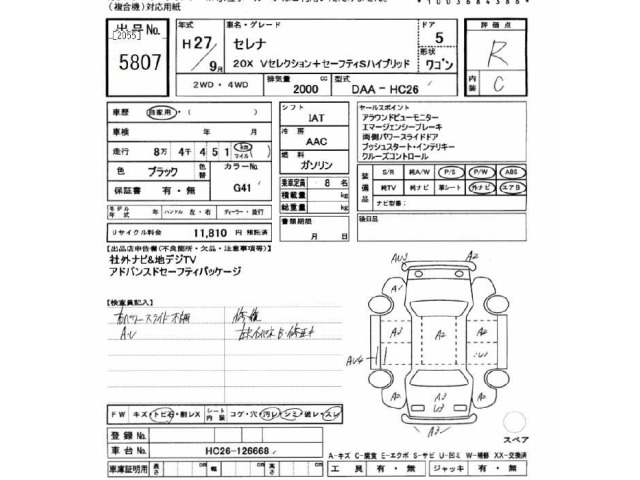 (複合機)対応用紙
出品No.
[2055]
5807
年式
H27/9月
車名・グレード
セレナ
20X Vセレクション+セーフティSハイブリッド
ドア
5
形状
ワゴン
評価点
R
内装
C
2WD・4WD
排気量
2000
cc
型式
DAA-HC26
車歴
自家用・( )
車検
年 月
走行
8万 4千 4 5 1
km
マイル
色
ブラック
色替
カラーNo.
G41
保証書
有・無
モデル年式
年
ハンドル
左・右
ディーラー・並行
リサイクル料金
11,810 円
預託済
シフト
IAT
冷房
AAC
燃料
ガソリン
乗車定員
8 名
積載量
kg
総重量
kg
書類期限
月 日
セールスポイント
アラウンドビューモニター
エマージェンシーブレーキ
両側パワースライドドア
プッシュスタート・インテリキー
クルーズコントロール
装備品
S/R
純A/W
P/S
P/W
ABS
純TV
純ナビ
革シート
外ナビ
エアB
ナビ型番:
後日品
【出品店申告欄(不良箇所・欠品・注意事項等)】
社外ナビ&地デジTV
アドバンスドセーフティパッケージ
【検査員記入】
右パワースライド不調
AU
修複
AU3
A2
A1
A2
A2
A2
A2
AU4
A2
A3
U3
A2
A3
FW
キズ・トビ石・割レX
シート内装
コゲ・穴・汚レ・シミ・破レ・スレ
スペア
登録No.
車台No.
HC26-126668
A-キズ C-腐食 E-エクボ S-サビ U-凹ミ W-補修 XX-交換済
車庫証明用
長さ
cm
幅
cm
高さ
cm
工具
有・無
ジャッキ
有・無